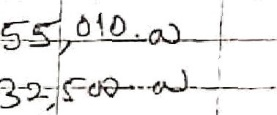 55,010.00
32,500.00